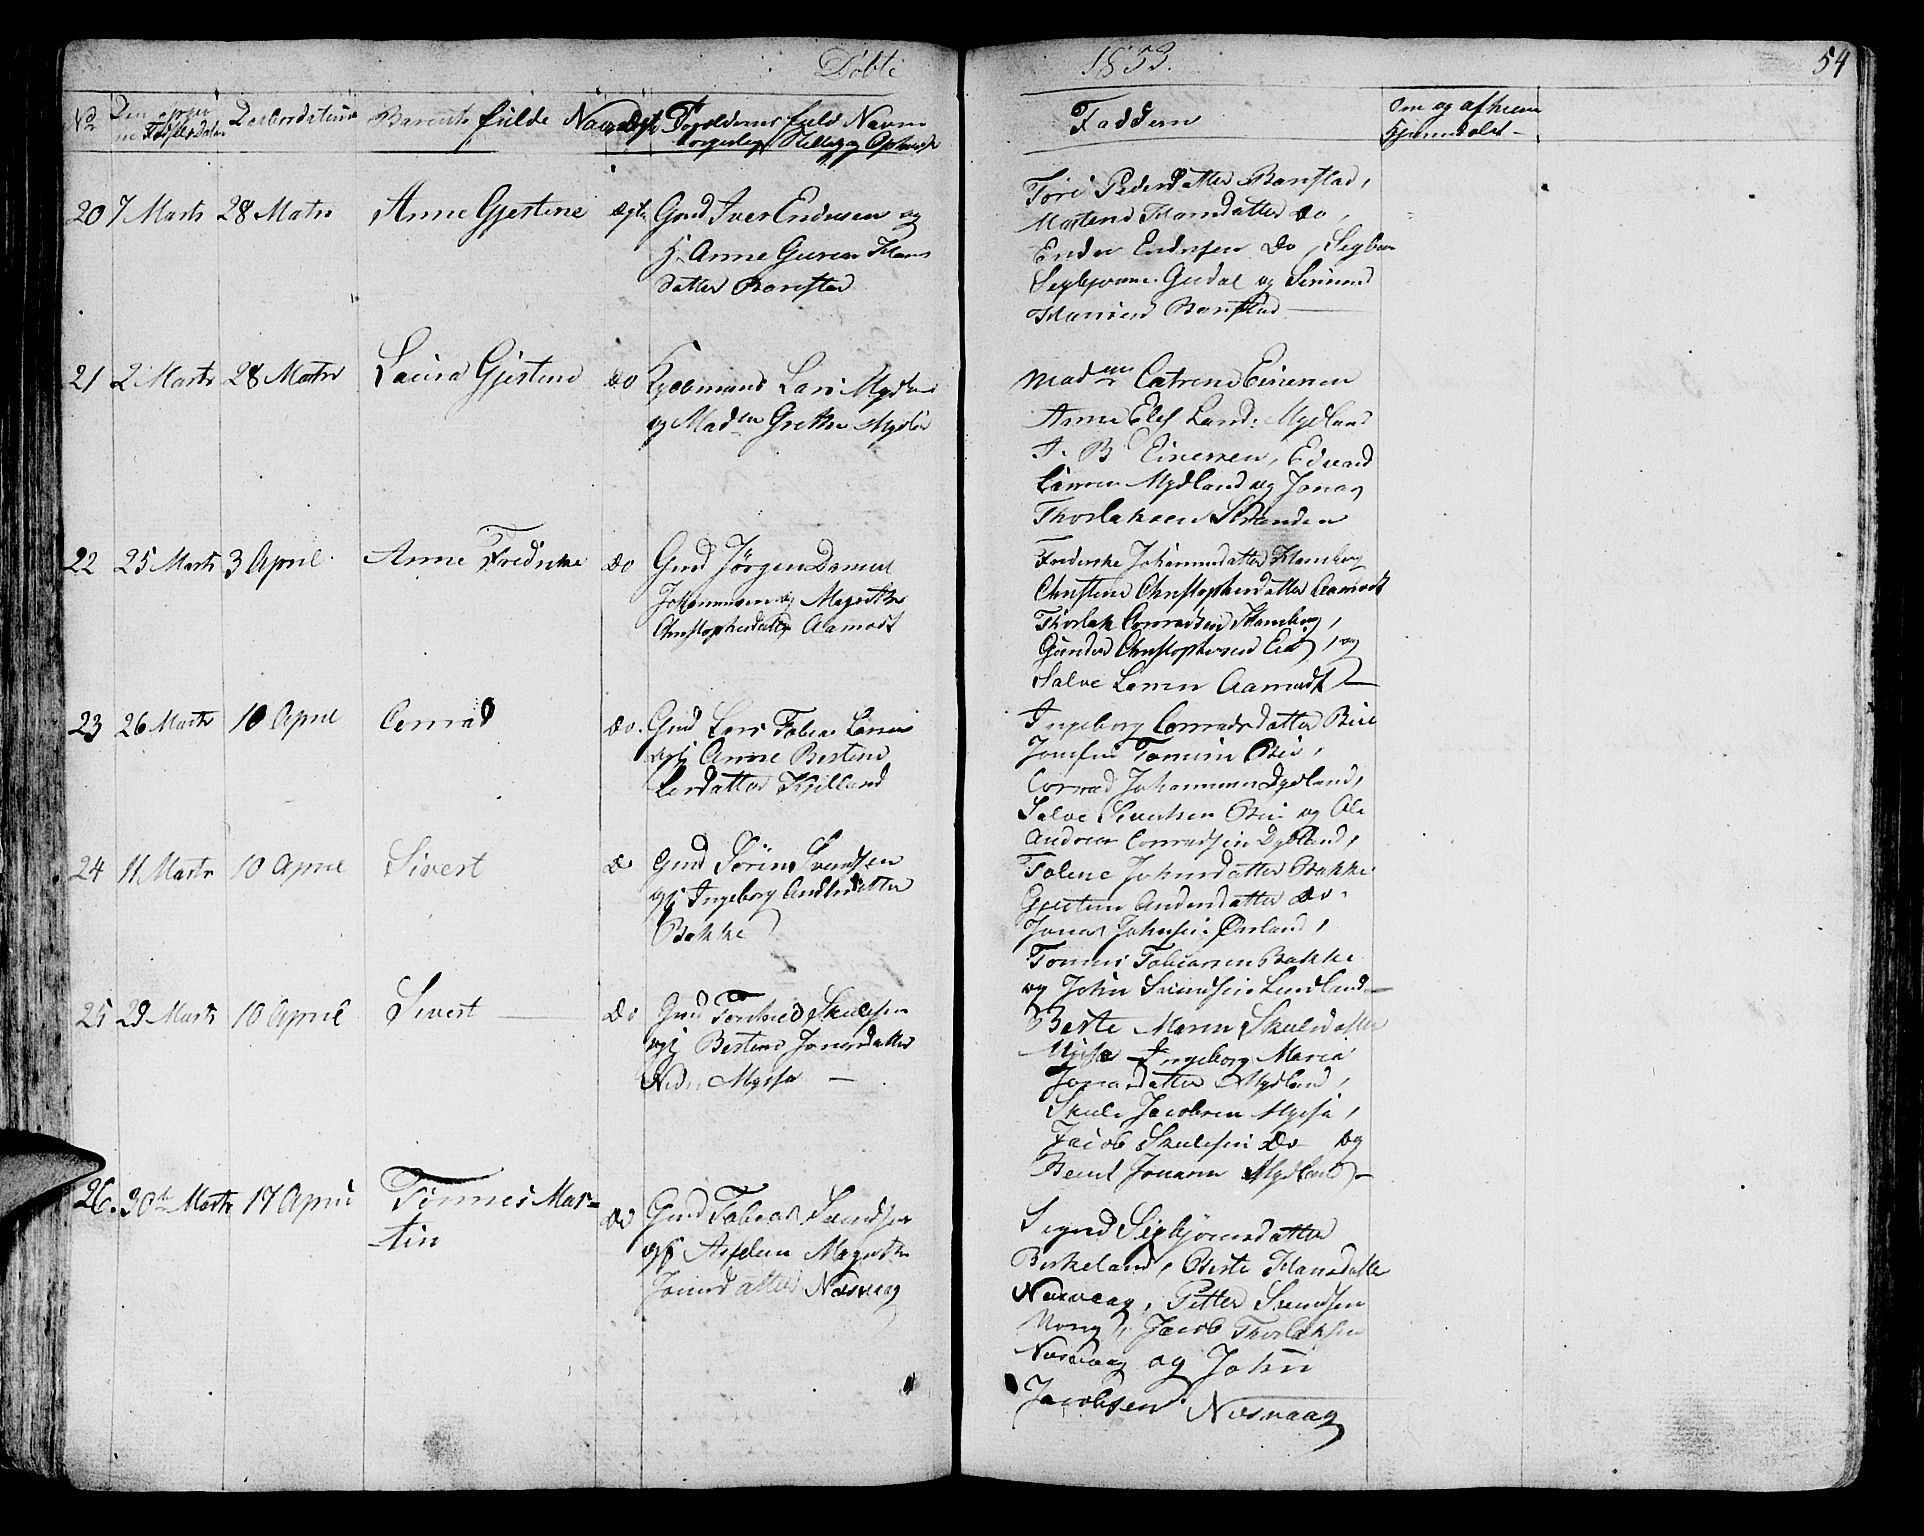 Döbte
1833.
54
No
Daabsdatum
Barnets fulde Navn
Ægte
Forældrenes fuld Navn
Faddern
Om og af hvem
Hjemmedøbt
20 7 Marts 28 Mats Anne Gjestine Ægte Gmd Iver Endresen og
H. Anne Guren Hans
datter Barstad
Tori Pedersdatter Barstad,
Martene Hansdatter do,
Endre Endresen Do, Sigbiørn
Sigbjørns. Gudal og Simund
Hansen Barstad
21 2 Marts 28 Mats Laura Gjestine do Kjøbmand Lars Mydland
og Madm Grethe Mydland
Madme Catrene Einersen
Anne Elis Lard: Mydland
A. B Einersen, Edvard
Larsen Mydland og Jonas
Thorlaksen Stranden
22 25 Marts 3 April Anne Fredrikke do Gmd Jørgen Daniel
Johannesen og Magrethe
Christophersdatter Aamodt
Frederikke Johannesdatter Hamberg
Christine Christophersdatter Aamodt
Thorlak Conradsen Hamberg,
Gunder Christophersen Eie, og
Salve Larsen Aamodt
23 26 Marts 10 April Conrad do. Gmd Lars Tobias Larsen
og H. Anne Bertine
Larsdatter Kjelland
Ingeborg Conradsdatter Bie
Josefine Tomine Bie,
Conrad Johannesen Dydland,
Salve Sivertsen Bie og Ole
Andreas Conradsen Dydland,
24 11 Marts 10 April Sivert do Gmd Sören Svendsen
og H Ingeborg Andersdatter
Bakke
Tolene Johnsdatter Bakke
Gjertine Andersdatter do.
Jonas Johnsen Ørsland,
Tonnes Tobiassen Bakke
og John Svendsen Lundland
25 29 Marts 10 April Sivert do Gmd Torkield Skulesen
og H Bertine Jonasdatter
Nedr. Myssa
Berte Maren Skulesdatter
Myssa Ingeborg Maria
Jonasdatter Mydland,
Skule Jacobsen Myssa,
Jacob Skulesen Do og
Bernt Jonassen Mydland
26. 30te Marts 17 April Tønnes Mar-
tin
do Gmd Tobias Svendsen
og H Asseline Magrethe
Jonasdatter Næsvaag
Signd Sigbjørnsdatter
Birkeland, Berte Hansdatter
Næsvaag, Petter Svendsen
Mong, Jacob Thorlaksen
Næsvaag og John
Jacobsen Næsvaag